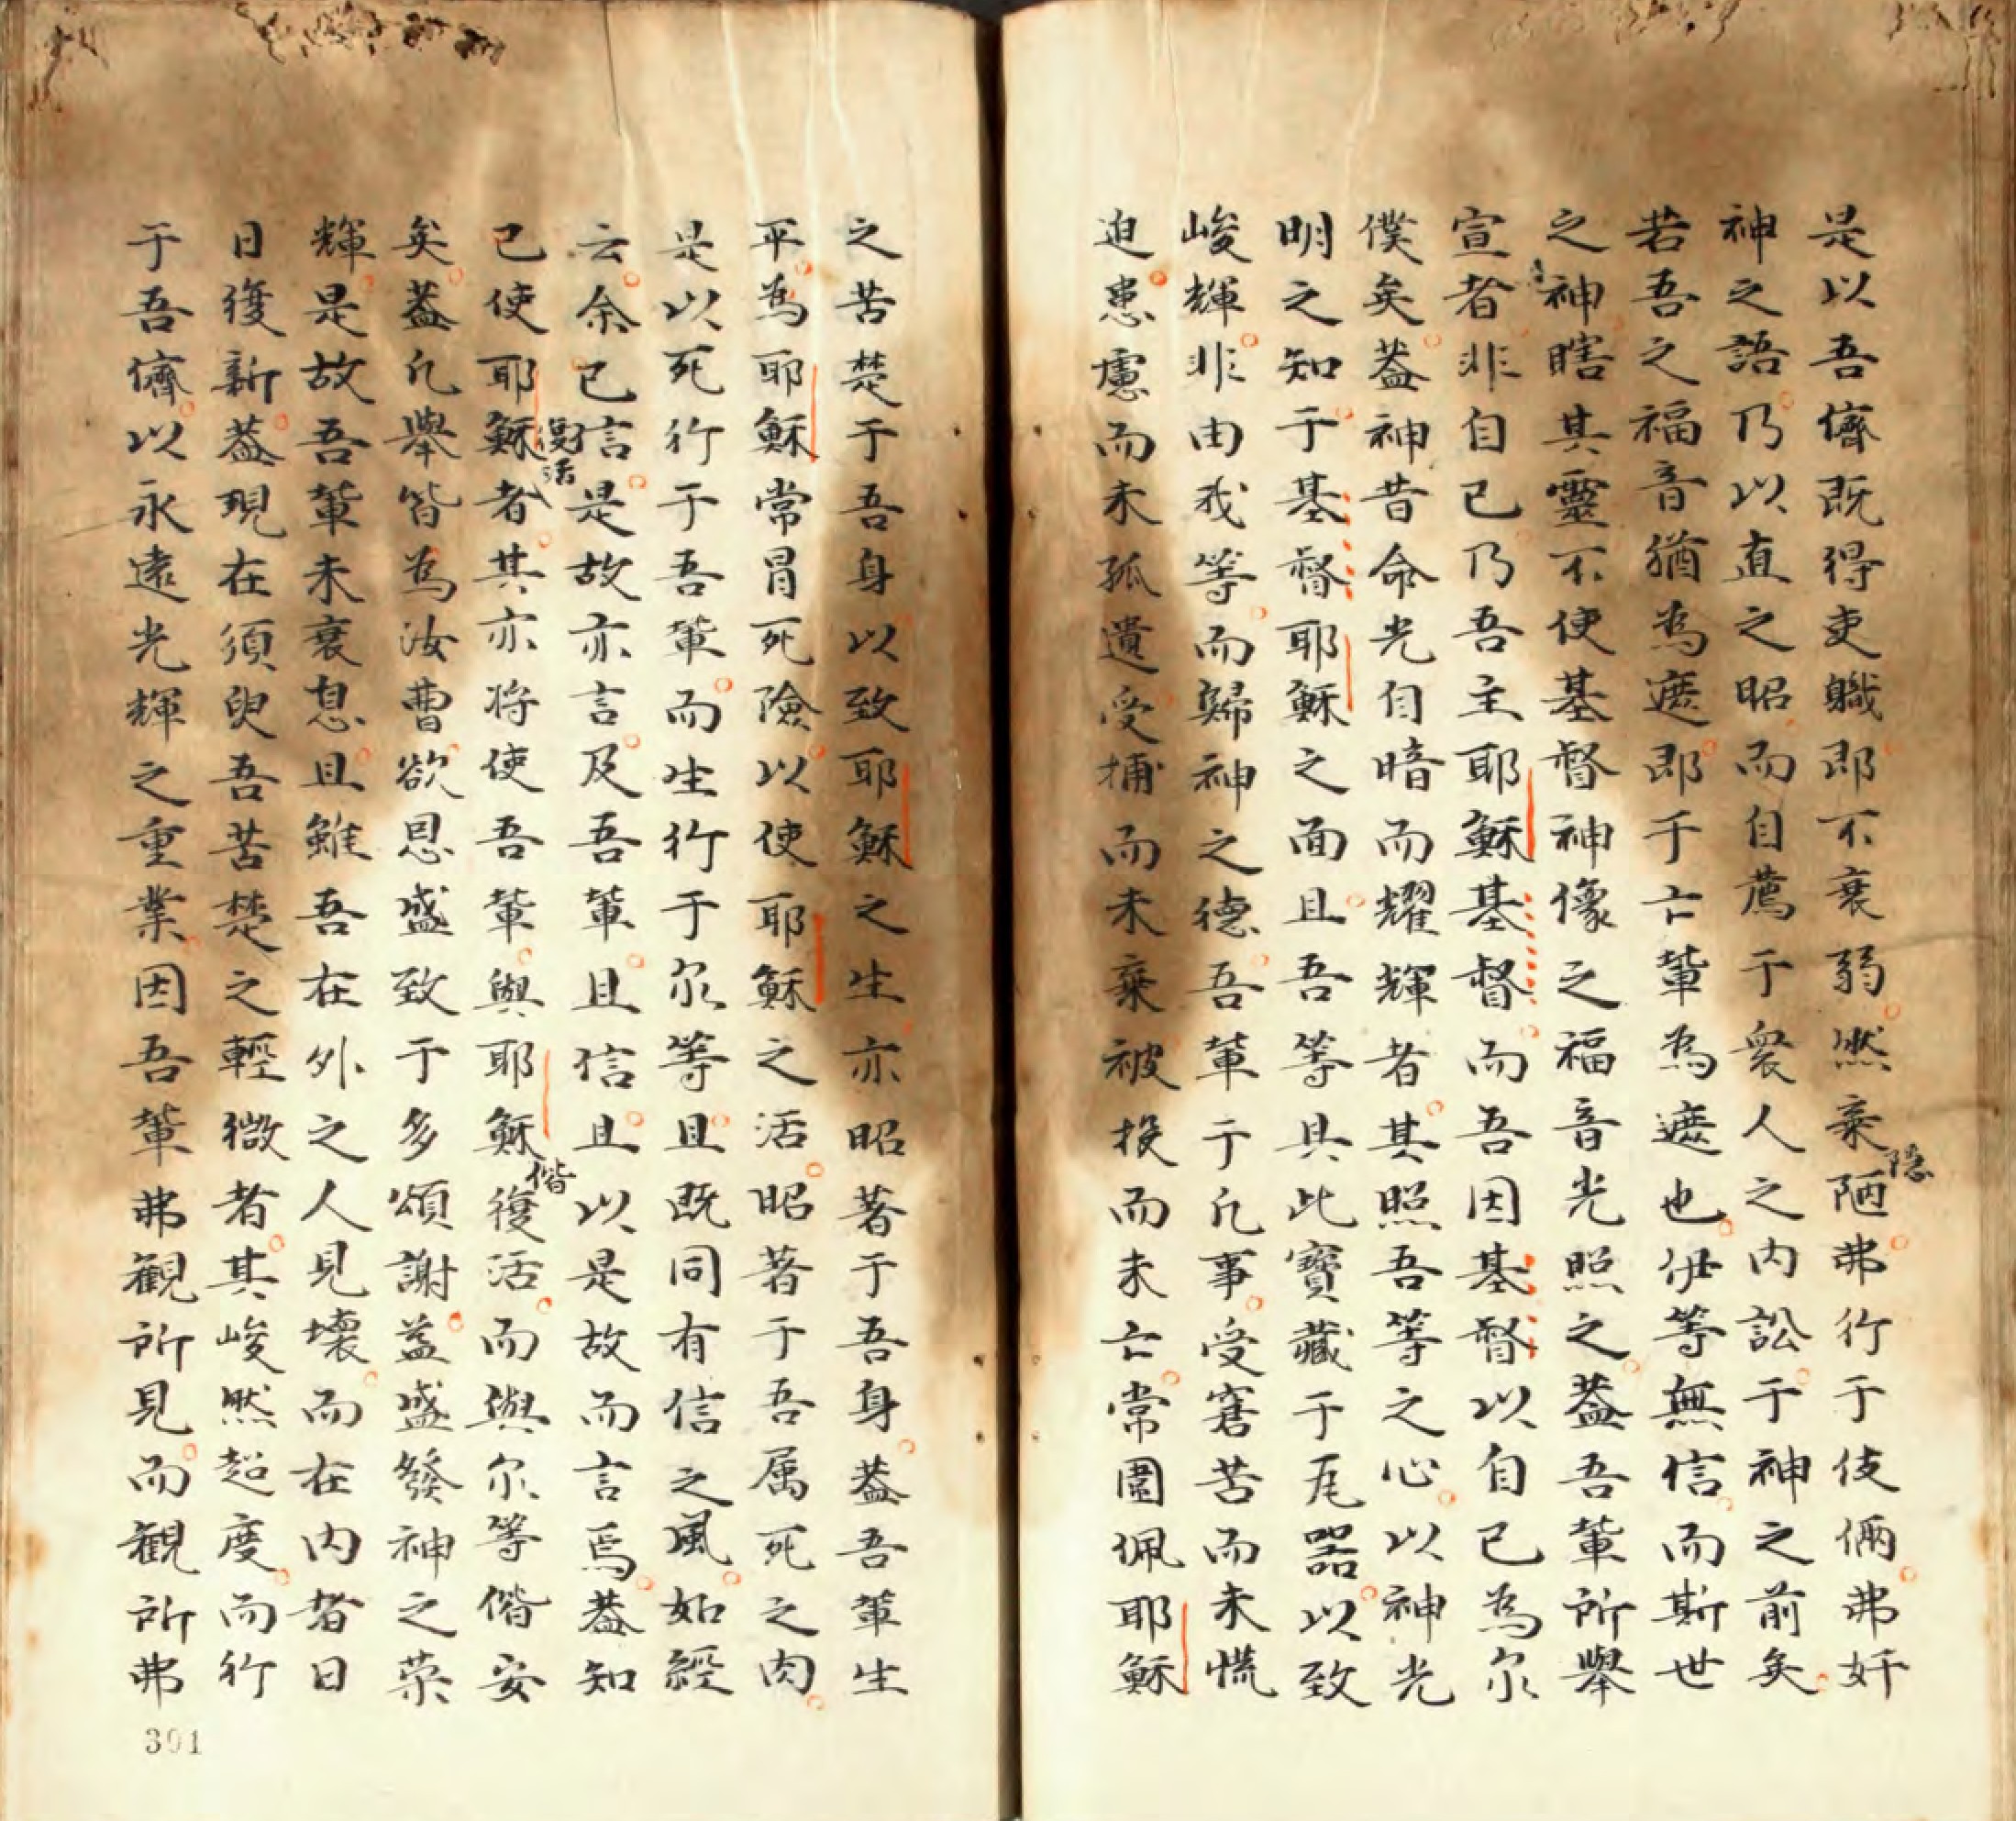 是以吾儕既得吏職即不衰弱然棄陋弗行于伎倆弗奸
隠
神之語乃以直之昭而自薦于衆人之内訟于神之前矣
若吾之福音猶為遮即于亡輩為遮也伊等無信而斯世
之神瞎其靈不使基督神像之福音光照之葢吾輩所舉
宣者非自已乃吾主耶穌基督而吾因基督以自已為尔
僕矣葢神昔命光自暗而耀輝者其照吾等之心以神光
明之知于基督耶穌之面且吾等具此寶藏于瓦器以致
峻輝非由我等而歸神之德吾輩于凡事受窘苦而未慌
迫患慮而未孤遺受捕而未棄被投而未亡常圍佩耶穌
之苦楚于吾身以致耶穌之生亦昭著于吾身葢吾輩生
平為耶穌常冒死險以使耶穌之活昭著于吾属死之肉
是以死行于吾輩而生行于尔等且既同有信之風如經
云余已信是故亦言及吾輩且信且以是故而言焉葢知
復活
已使耶穌者其亦将使吾輩與耶穌復活而與尔等偕安
偕
矣葢凡舉皆為汝曹欲恩盛致于多頌謝益盛發神之荣
輝是故吾輩未衰息且雖吾在外之人見壞而在内者日
日復新葢現在須臾吾苦楚之輕微者其峻然超度而行
于吾儕以永遠光輝之重業因吾輩弗観所見而観所弗
301